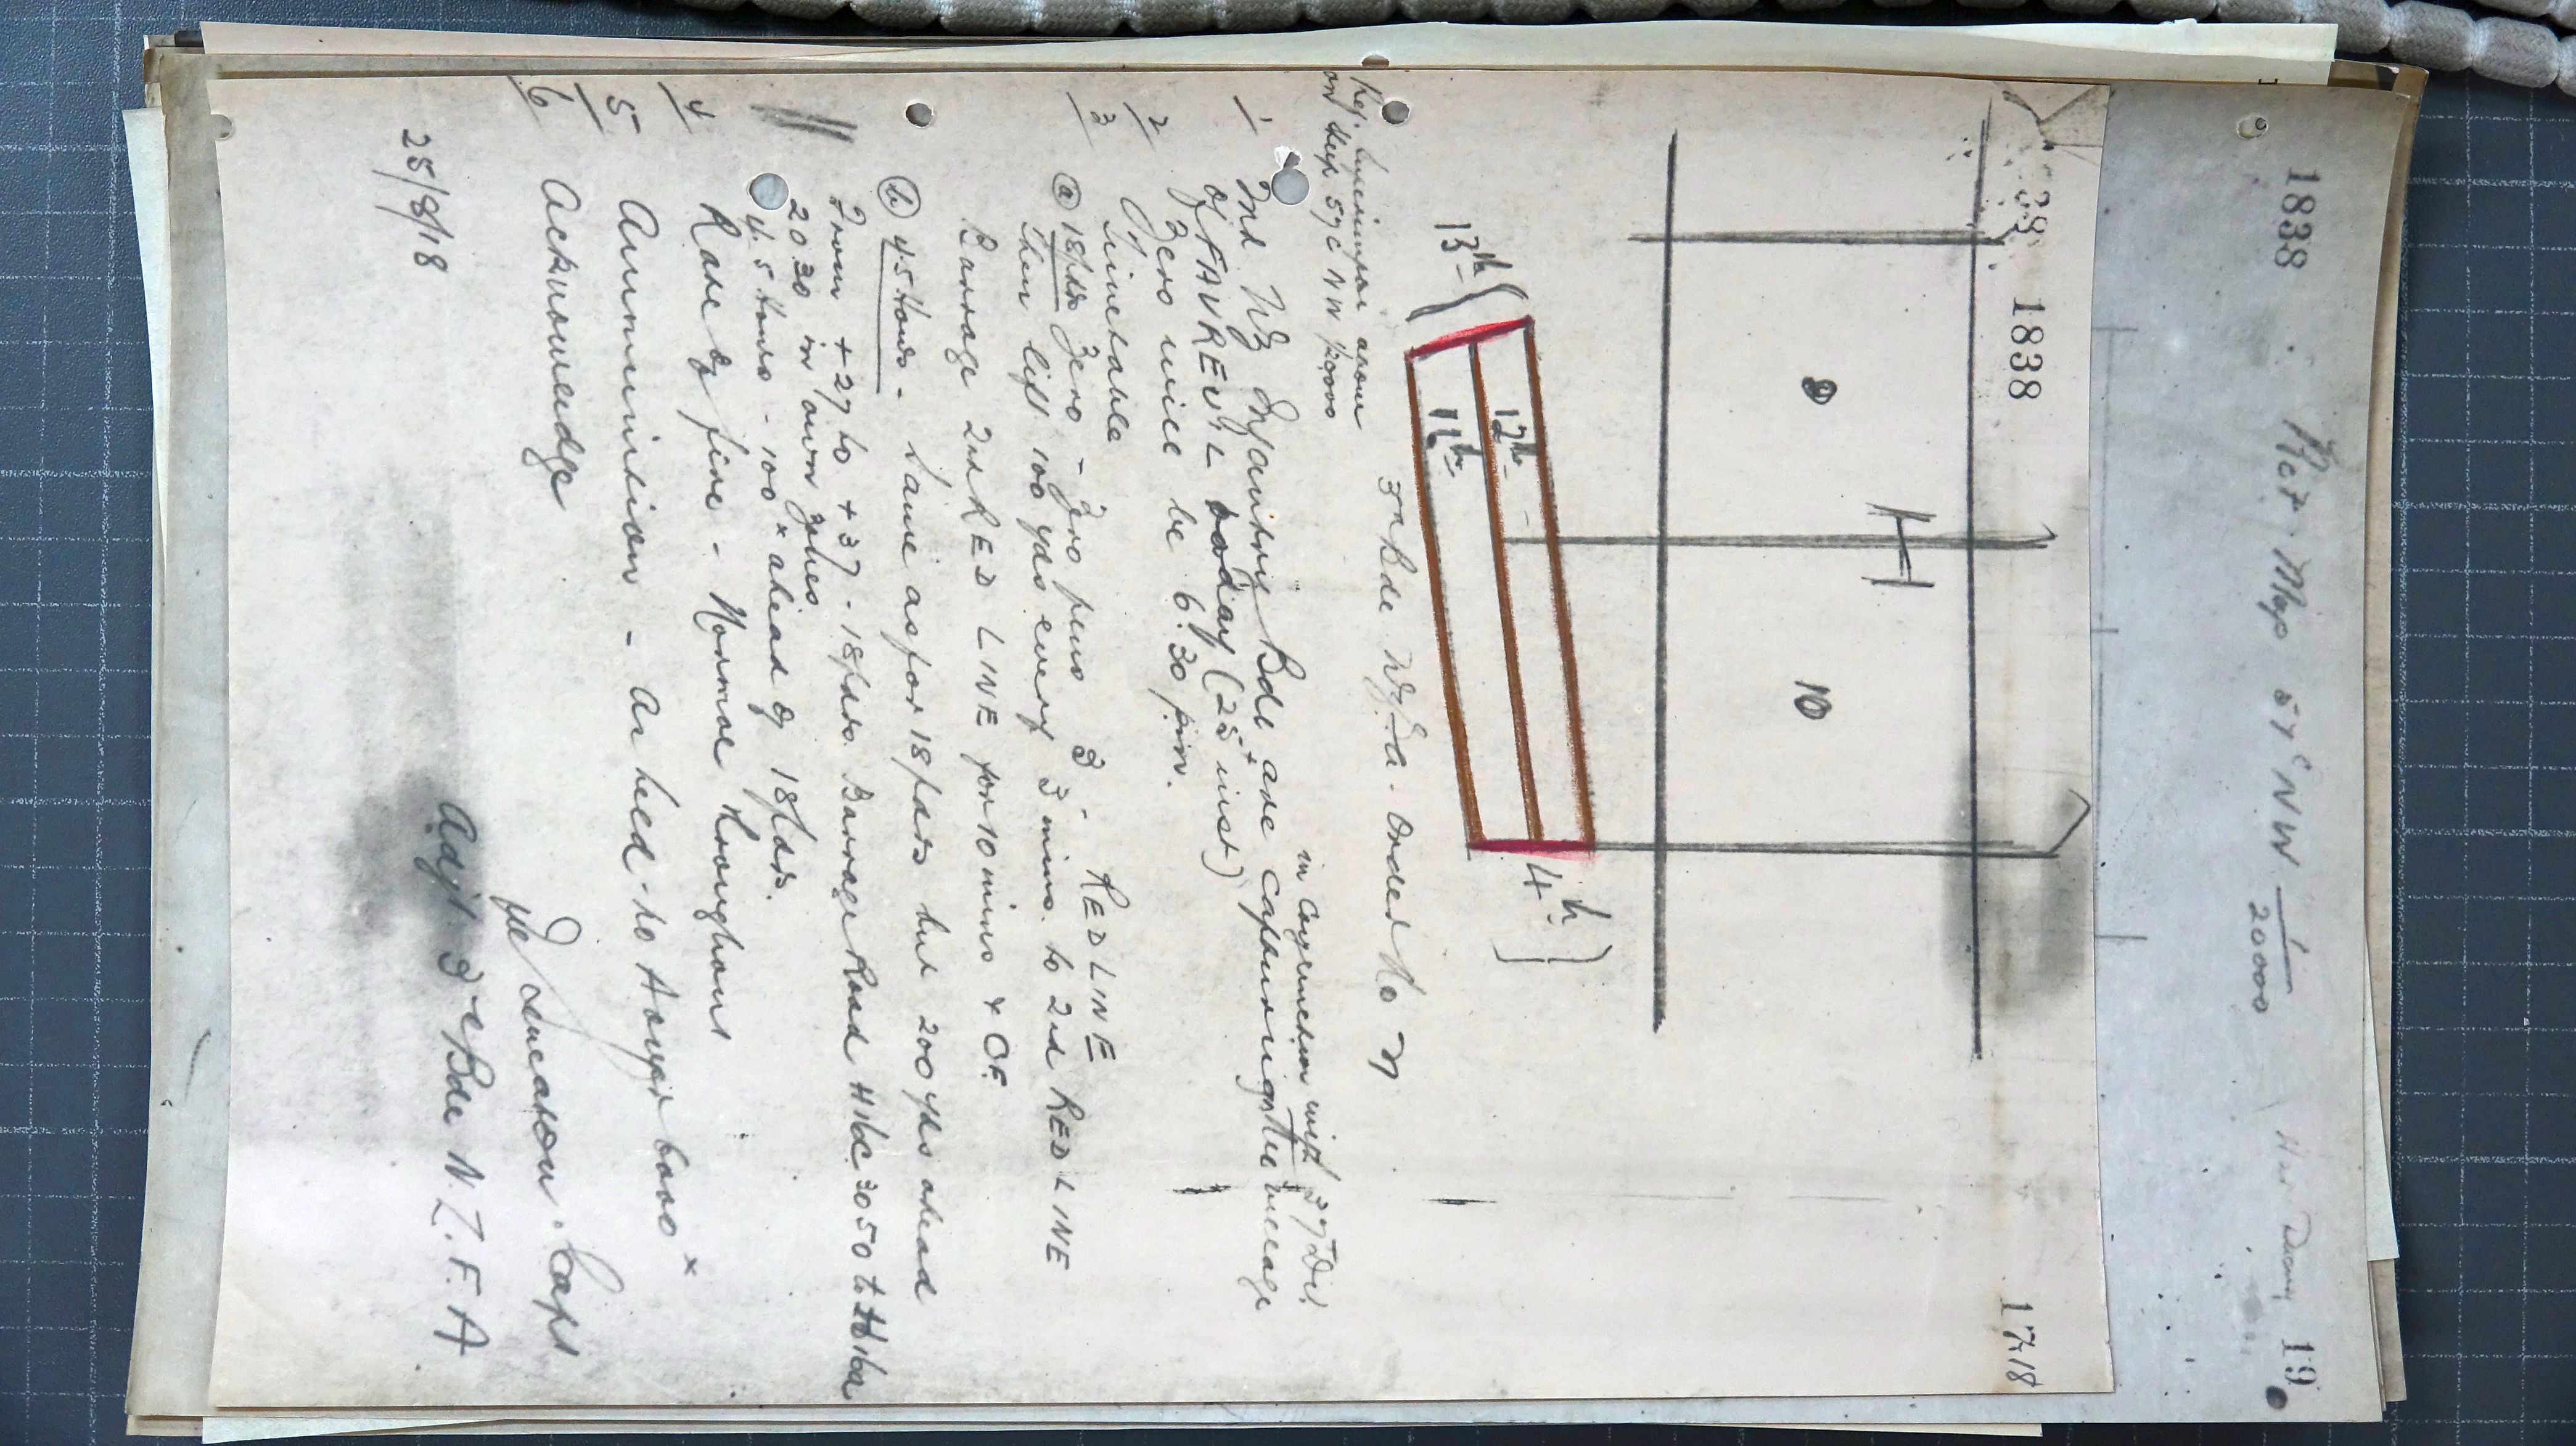 1838 Ref. Map 57c NW 1/20000 19
38 1838 1718
9 10
H
12th
11th
13th
4th
3rd Bde NZFA. Order No
Ref. on Map 57c NW 1/20000
in conjunction with 37 Div
1 2nd NZ Infantry Bde are capturing the village
of FAVREUIL today (25th inst)
2 Zero will be 6.30 pm.
3 Timetable RED LINE
(a) 18pdrs Zero - Zero plus 3 - RED LINE
then lift 100 yds every 3 mins. to 2nd RED LINE
Barrage 2nd RED LINE for 10 mins
(b) 4.5 Hows - Same as for 18pdrs but 200 yds ahead
From +27 to +37 - 18pdrs Barrage Road H16c 3050 to H16a
2030 in own zones
4.5 Hows - 100x ahead of 18pdrs.
4 Rate of fire - Normal throughout
5 Ammunition -
6 Acknowledge
Capt
Adjt 3rd Bde N.Z.F.A.
25/8/18